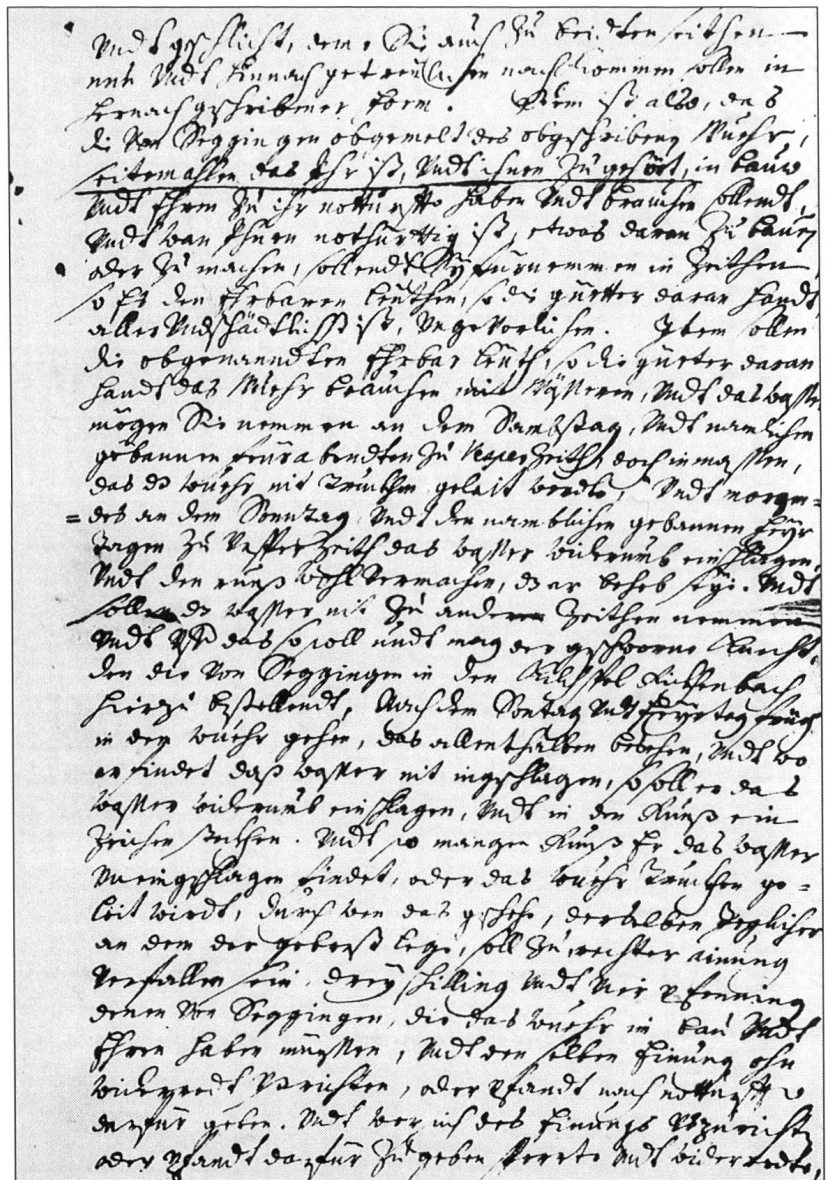 Vndt geschlicht, dem Sie auch zu beidten seithen
vnd Vndt hinnach getreulichen nachkommen sollen in
hernach geschribner form. Dem ist also, das
die Von Seggingen obgemelt des obgschriben Wuehr,
seitemahlen das Ihr ist, Vndt ihnen zu gehört, in bauw
Vndt Ehren zu ihr notturfft haben Vndt brauchen sollendt,
Vndt wan Ihnen nothürttig ist, etwas daran zu bauen
oder zu machen, sollendt Sy fürnemmen in Zeithen
so Es den Ehrbaren leuthen, so die güetter daran handt,
aller Vnschädtlichist ist, Vngevorlichen. Item sollen
die obgenanndten Ehrbar leuth, so die güeter daran
handt das Wuehr brauchen mit Wässeren, Vndt das wasser
mögen Sie nemmen an dem Sambstag, Vndt namlichen
gebannen feürabendten zu Vesper Zeith, doch inmassen,
das dz wuehr nit Trucken geleit werde, Vndt morgen=
=des an dem Sonntag Vndt den namblichen gebannen feyr
Tagen zu Vesper Zeith das wasser widerumb einschlagen
Vndt den runß wohl Vermachen, dz er beheb seye. Vndt
sollen dz wasser nit zu anderen Zeithen nemmen
Vndt Vff das so soll undt mag der gschworne Knecht,
den die Von Seggingen in den Kilchspel Rickhenbach
hierzu bestellendt, Nach dem Sontag Vndt feyrtag früeh
in den wuehr gehen, das allenthalben besehen, Vndt wo
er findet daß wasser nit ingschlagen, so soll er das
wasser widerumb einschlagen, Vndt in den Runß ein
Zeichen steckhen. Vndt so mangen Runß Er das wasser
Vneingschlagen findet, oder das wuehr Trucken ge=
leit wirdt, durch wen das geschehe, derselben Jeglicher
an dem der gebrest lege, soll zu rechter ainung
Verfallen sein, drey schilling Vndt Vier pfenning
denen Von Seggingen, die das wuehr in bau Vndt
Ehren haben müessen, Vndt den selben Einung ohn
widerredt Vsrichten, oder pfandt nach notturfft
darfür geben. Vndt wer sich des Einungs Vszurichten
oder pfandt darfür zu geben sperrte Vndt widerredte,